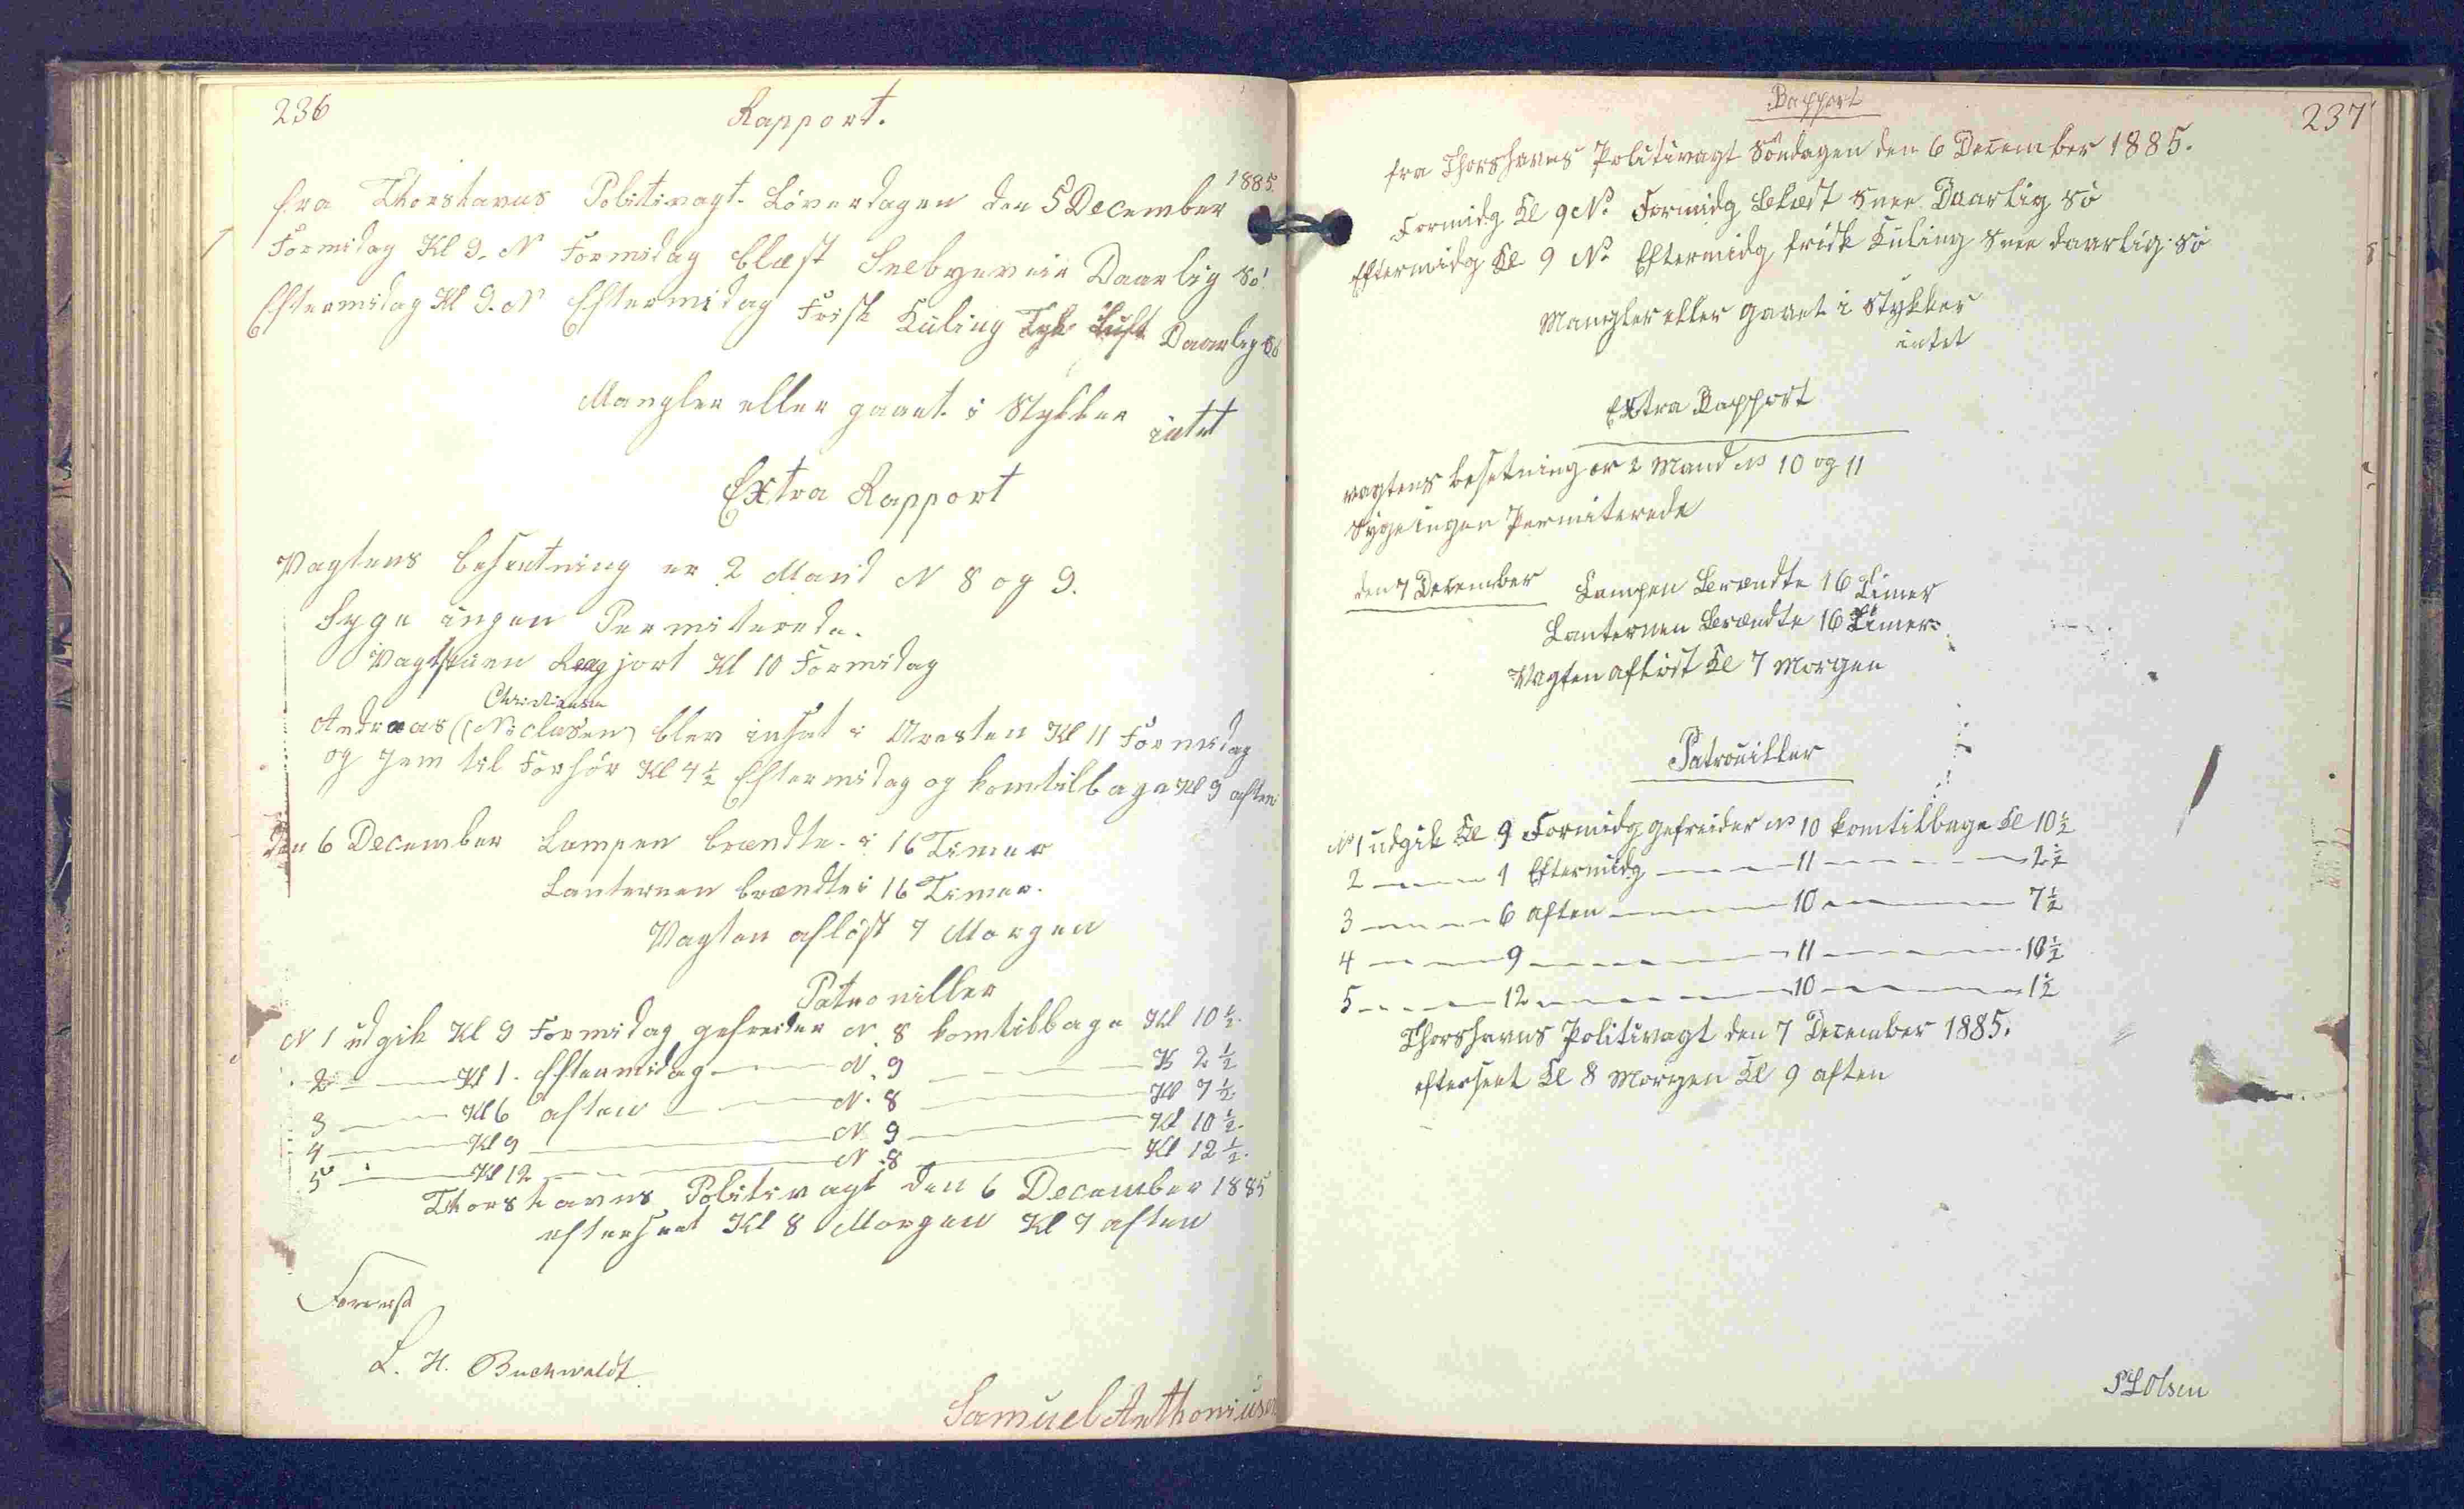 236
Rapport.
fra Thorshavns Politivagt Löverdagen den 5 December 1885.
Formidag Kl 9. N Formidag blæst Sneebyer Daarlig Sö
Eftermidag Kl 9. N Eftermidag Frisk Kuling Tyk Luft Daarlig Sö
Mangler eller gaaet i Stykker
intet
Extra Rapport
Vagtens besætning er 2 Mand N 8 og 9.
Syge ingen Permiterede.
Vagtstuen Reegjort Kl 10 Formidag
Christiansen
Andreas (Niclasen) blev insat i Aresten Kl 11 Formidag
og gem til Forhör Kl 4½ Eftermidag og komtilbage Kl 9 aften
Den 6 December Lampen brændte i 16 Timer
Lanternen brændte i 16 Timer.
Vagten aflöst 7 Morgen
Patroniller
N 1 udgik Kl 9 Formidag gefreider N. 8 komtilbage Kl 10½.
2 Kl 1. Eftermidag N. 9 Kl 2½
3 Kl 6 aften N. 8 Kl 7½
4 Kl 9 N 9 Kl 10½.
5 Kl 12 N. 8 Kl 12½.
Thorshavns Politivagt den 6 December 1885
efterseet Kl 8 Morgen Kl 7 aften
L. H. Buchwaldt.
Samuel Anthoniusen
237
Rapport
fra Thorshavns Politivagt Söndagen den 6 December 1885.
Formidg Kl 9 No. Formidg Blæst Snee Daarlig Sö
Eftermidg Kl 9 No Eftermidg frisk Kuling Snee daarlig Sö
Mangler eller gaaet i Stykker
intet
Extra Rapport
vagtens besetning er 2 Mand No 10 og 11
Syge ingen Permiterede
den 7 December Lampen Brændte 16 Timer
Lanternen Brændte 16 Timer
Vagten aflöst Kl 7 Morgen
Patrouiller
No 1 udgik Kl 9 Formidg gefreider No 10 komtilbage Kl 10½
2 1 Eftermidg 11 2½
3 6 aften 10 7½
4 9 11 10½
5 12 10 1½
Thorshavns Politivagt den 7 December 1885.
efterseet Kl 8 Morgen Kl 9 aften
P L Olsen